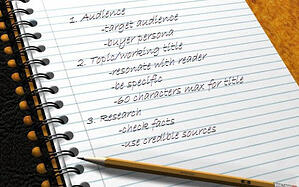 1. Audience
-target audience
-buyer persona
2. Topic/working title
-resonate with reader
-be specific
-60 characters max for title
3. Research
-check facts
-use credible sources